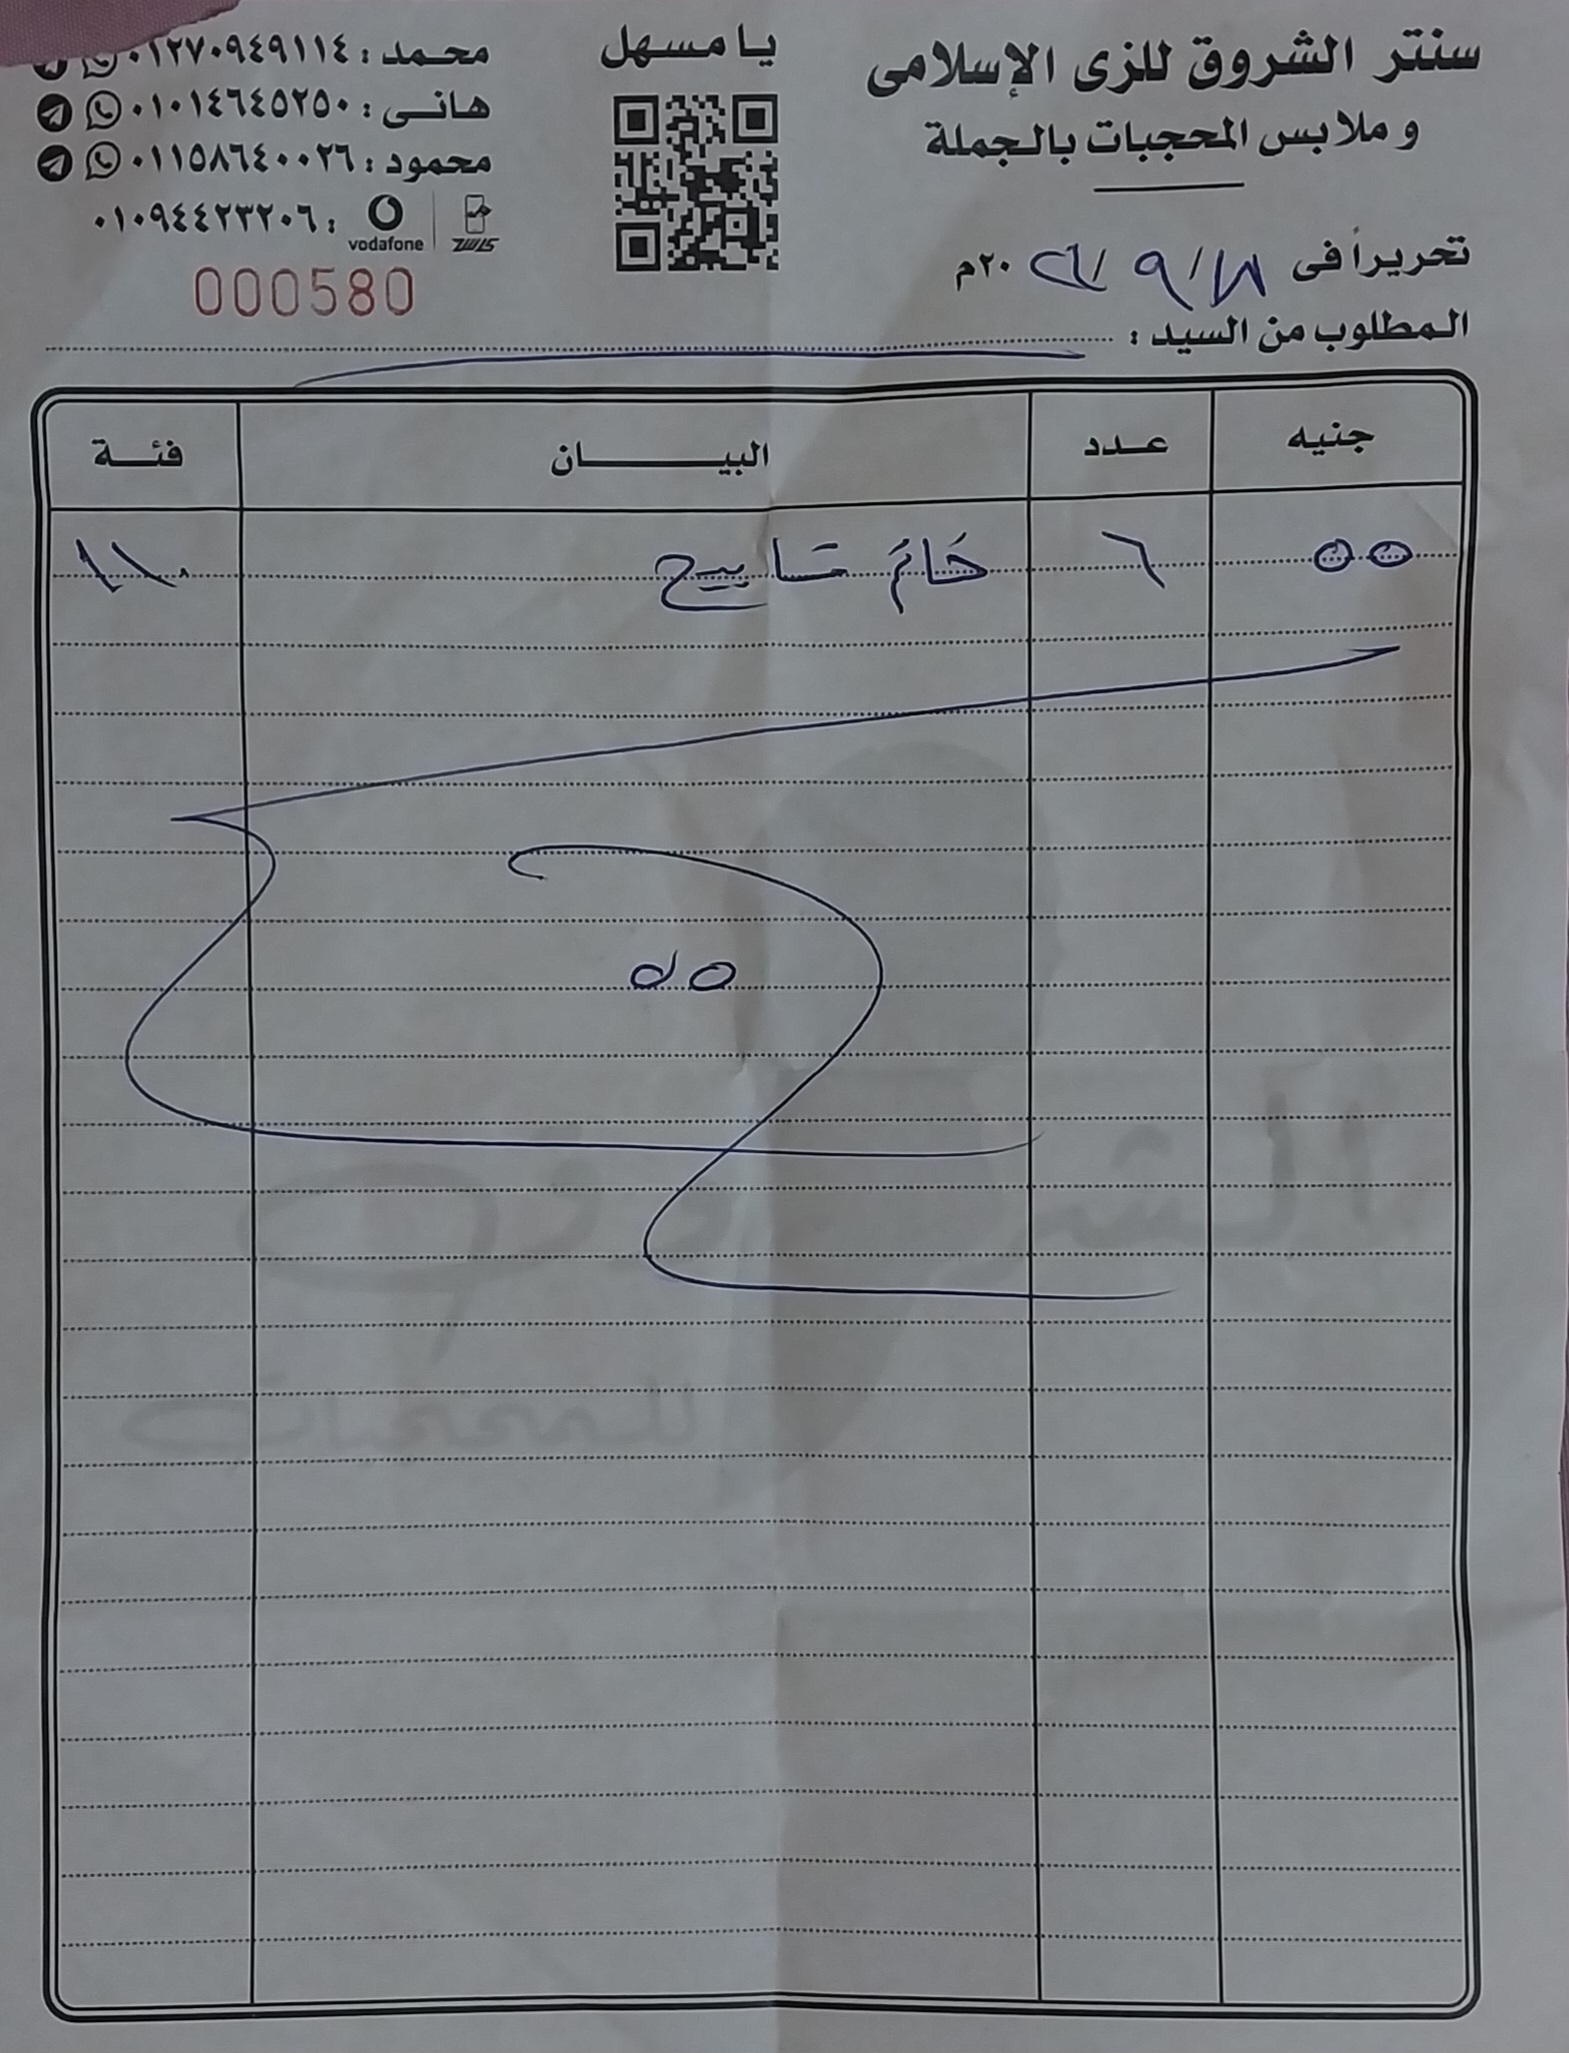 سنتر الشروق للزى الإسلامى
وملابس المحجبات بالجملة
يا مسهل
محمد : ٠١٢٧٠٩٤٩١١٤
هانى : ٠١٠١٤٦٤٥٢٥٠
محمود : ٠١١٥٨٦٤٠٠٢٦
vodafone كاش : ٠١٠٩٤٤٢٣٢٠٦
000580
تحريراً فى / ٩ / ٢٠٢٦م
المطلوب من السيد :
جنيه عدد البيان فئة
٥٥ ٦
٥٥
الشروق
للمحجبات